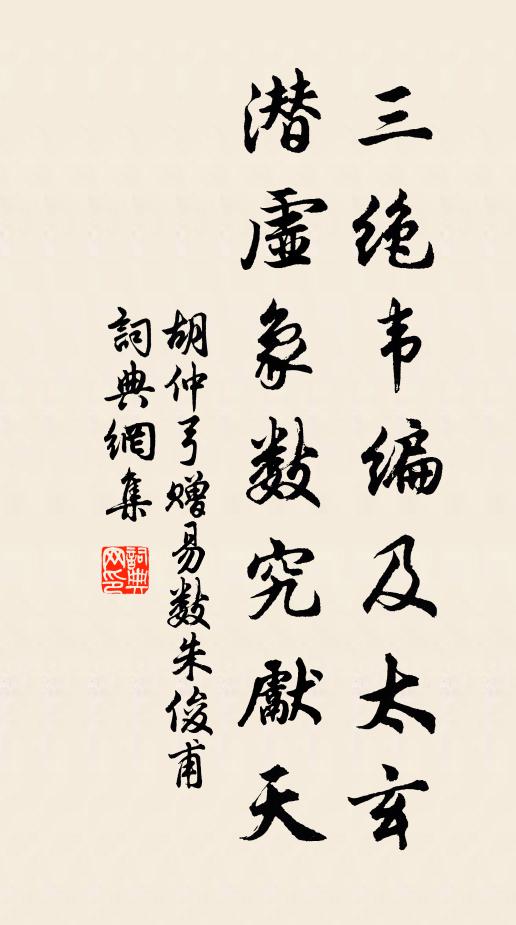 三绝韦编及太玄
潜虚象数究献天
胡仲弓赠易数朱俊甫
词典網集
詞典网印